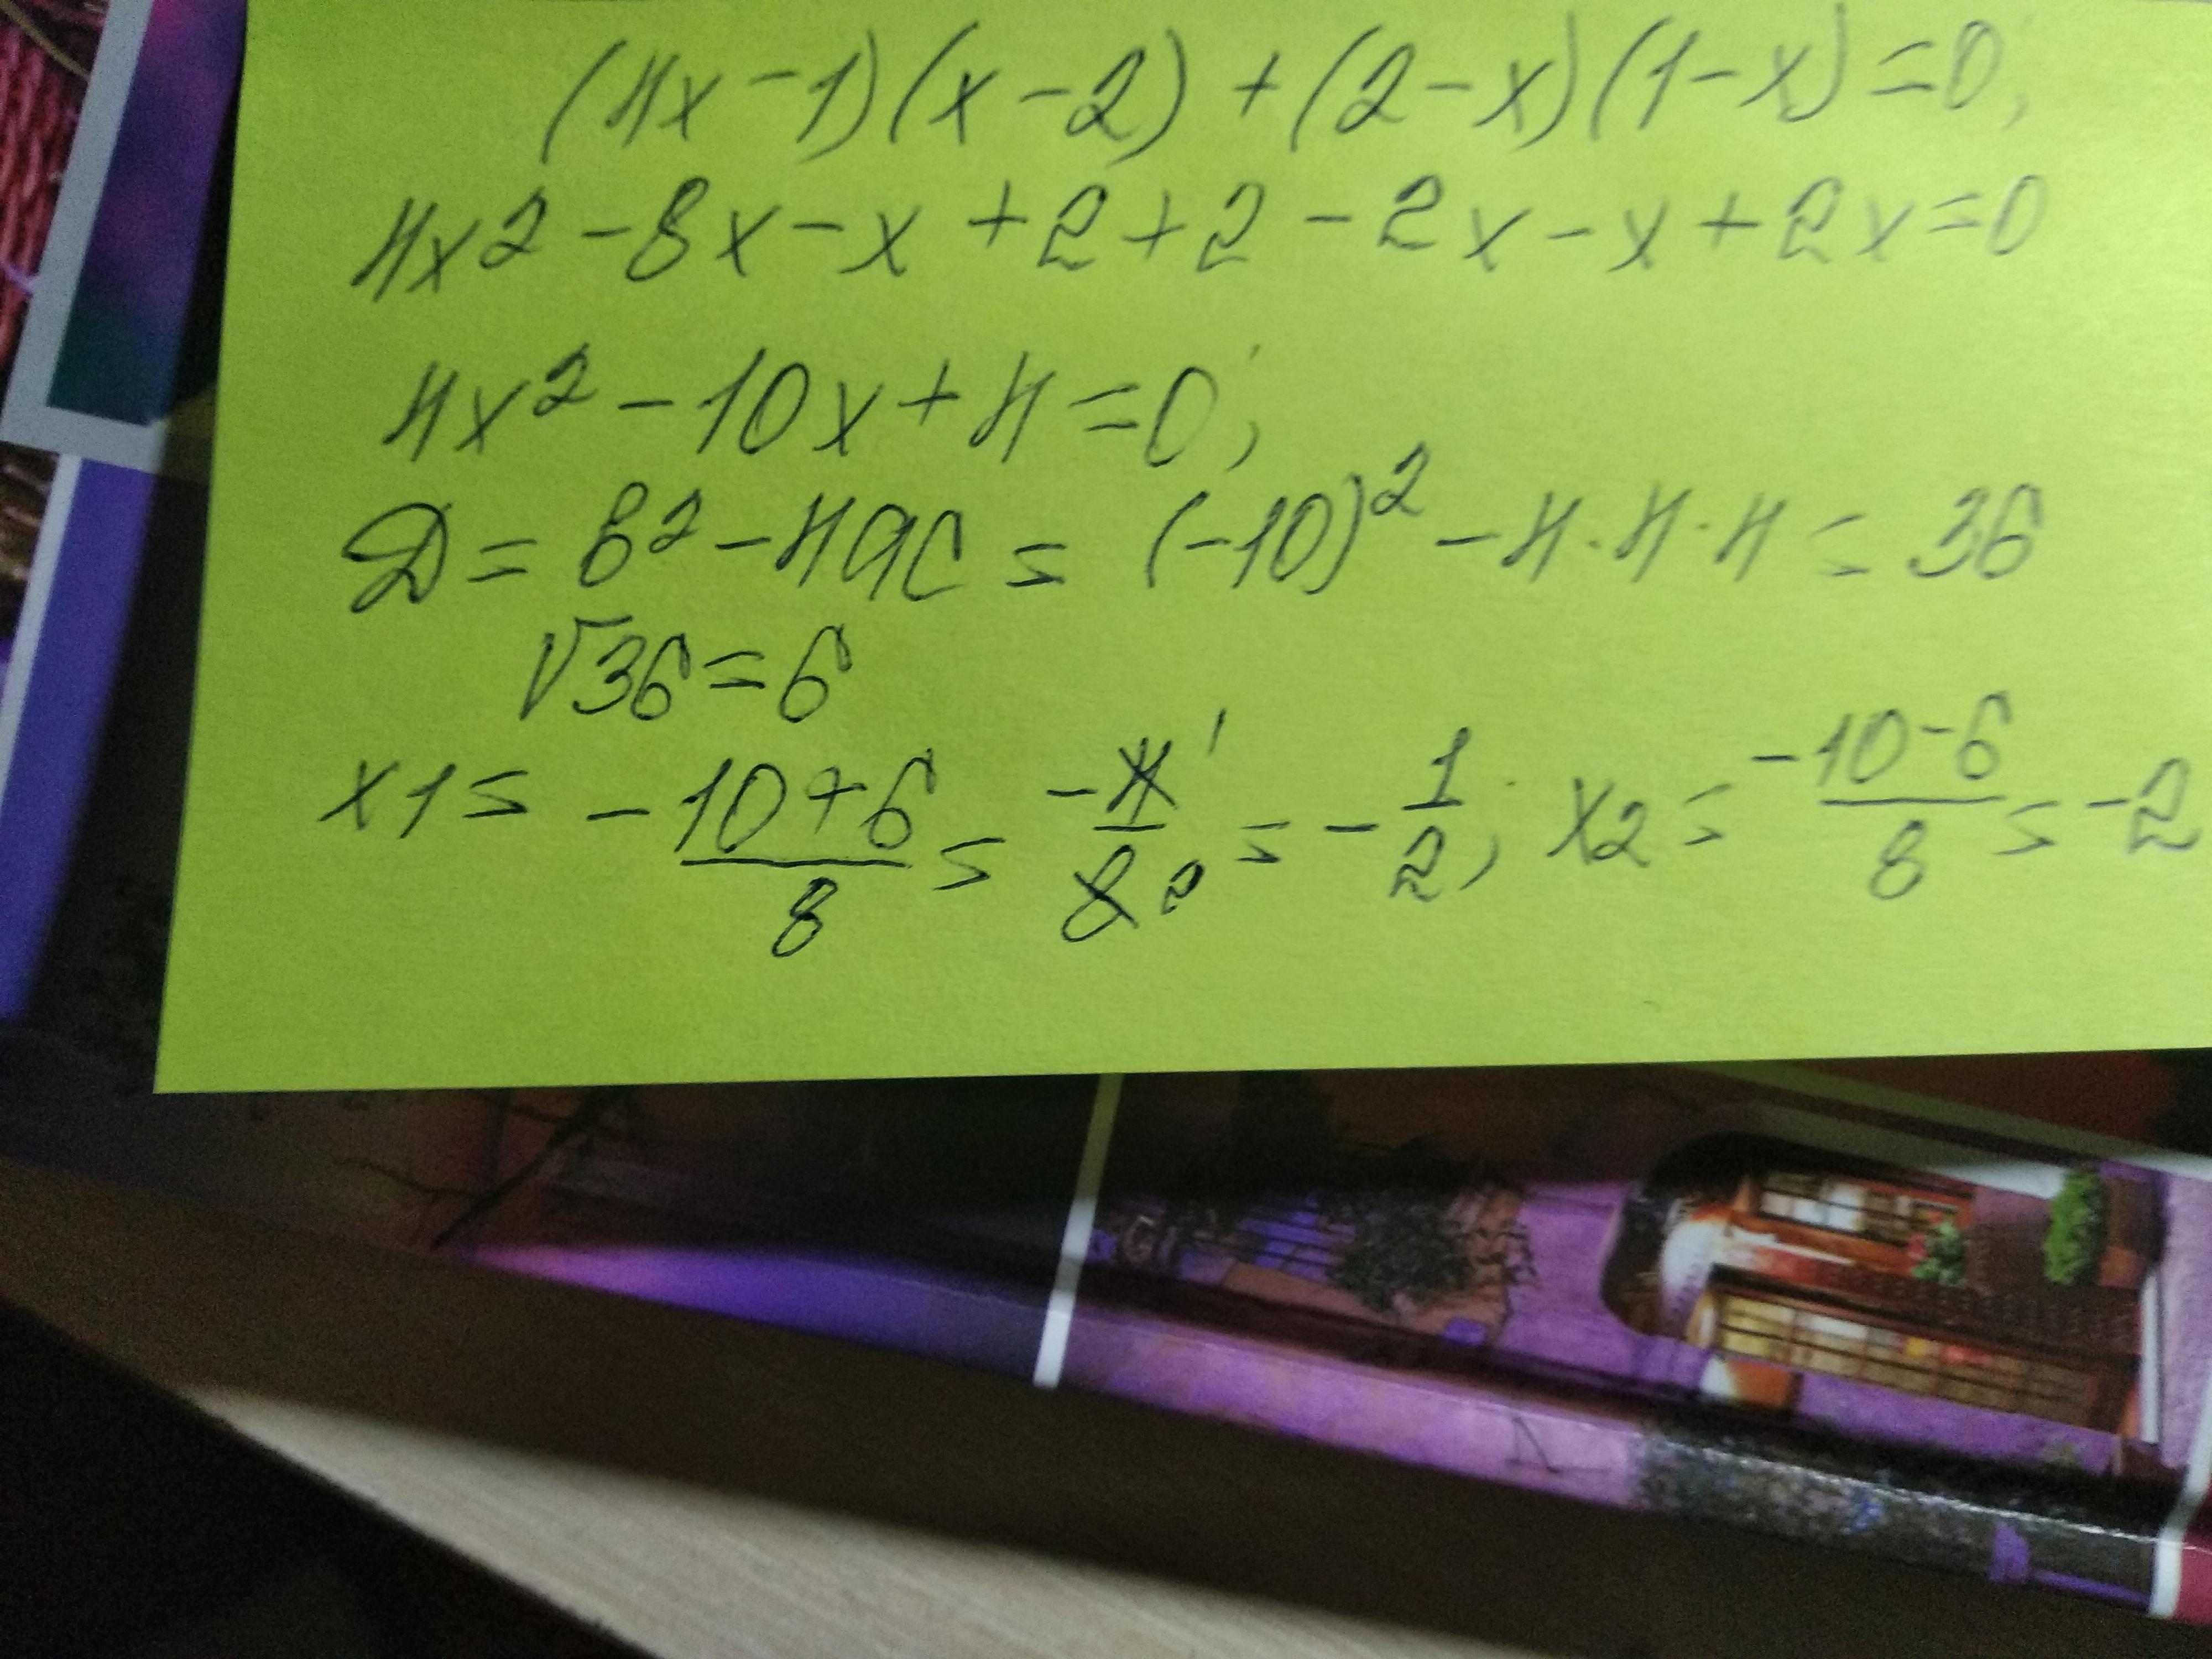 (4x-1)(x-2)+(2-x)(1-x)=0;
4x2-8x-x+2+2-2x-x+2x=0
4x²-10x+4=0;
D=b²-4ac=(-10)²-4·4·4=36
√36=6
x1=-10+6/8=-4/8=-1/2; x2=-10-6/8=-2